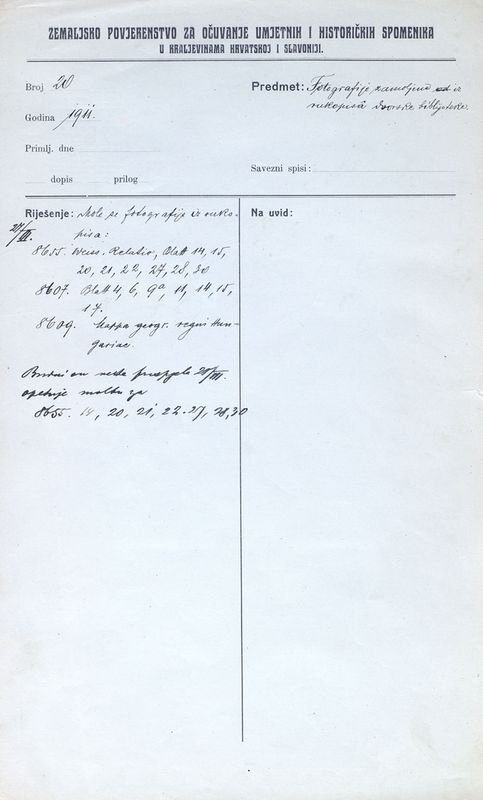 ZEMALJSKO POVJERENSTVO ZA OČUVANJE UMJETNIH I HISTORIČKIH SPOMENIKA
U KRALJEVINAMA HRVATSKOJ I SLAVONIJI.
Broj 20
Godina 1911.
Primlj. dne
dopis prilog
Predmet: Fotografije zamoljene od iz
rukopisâ dvorske biblijoteke.
Savezni spisi:
Riješenje: Mole se fotografije iz ruko-
27/III. pisa:
8655. Weiss. Relatio, Blatt 14, 15,
20, 21, 22, 27, 28, 30
8607. Blatt 4, 6, 9a, 11, 14, 15,
17.
8609. Mappa geogr. regni Hun-
gariae.
20/III.
opetuje molbu za
8655. 14, 20, 21, 22. 27, 28, 30
Na uvid: